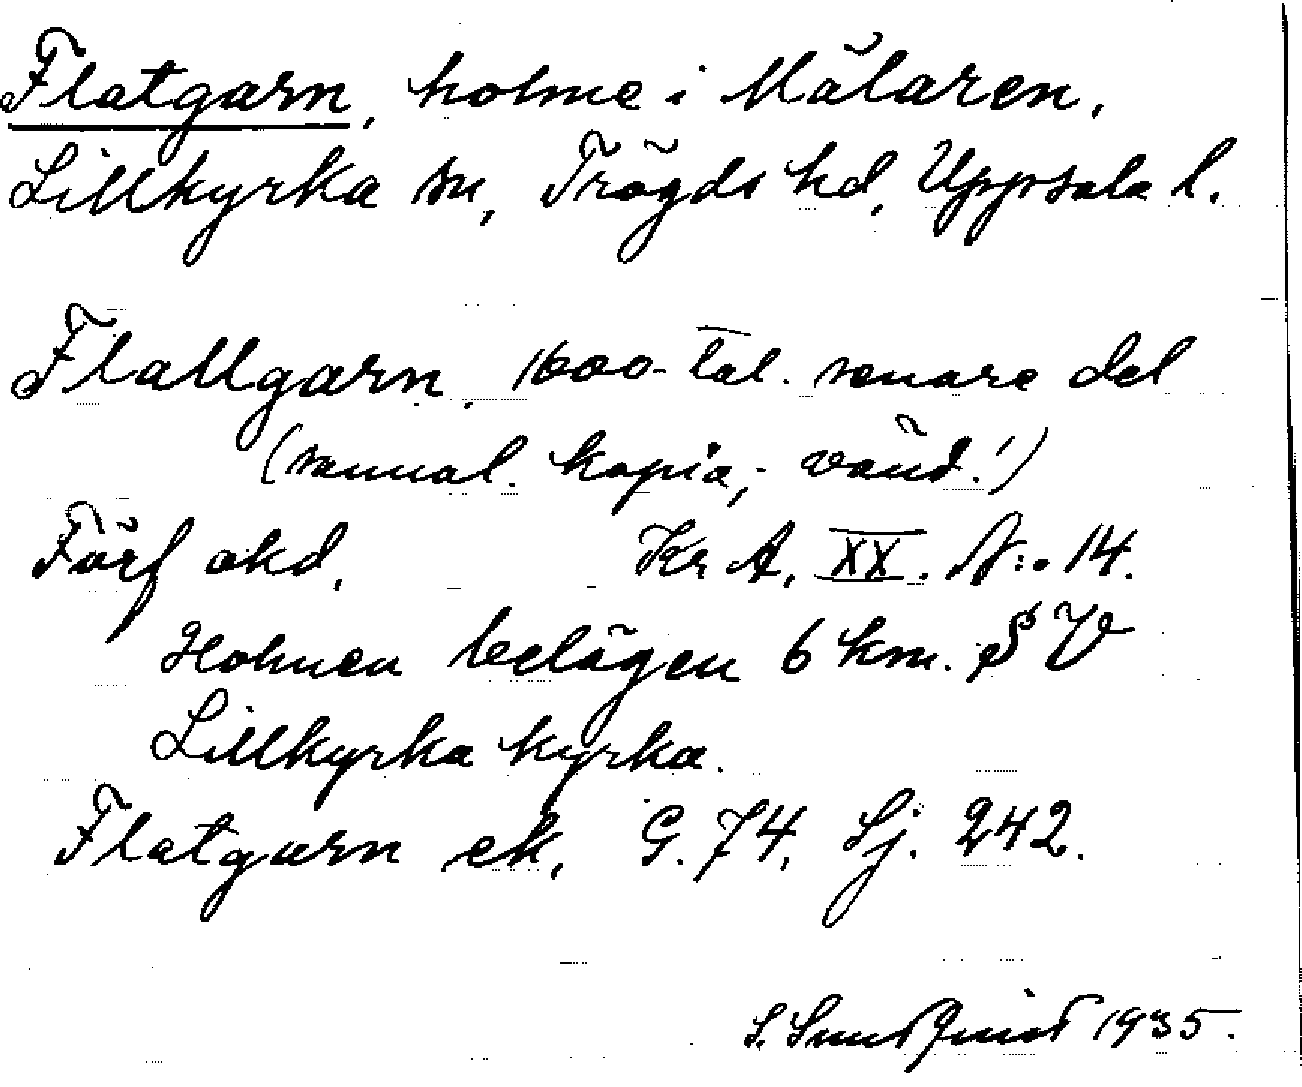 Flatgarn, holme i Mälaren,
Lillkyrka sn, Trögds hd, Uppsala l.
Flattgarn, 1600-tal. senare del
(samal. kopia; vänd!)
Förf okd. Kr A, XX. N:o 14.
Holmen belägen 6 km. S V
Lillkyrka kyrka.
Flatgarn ek, G. 74, Sj. 242.
S. Sundquist 1935.